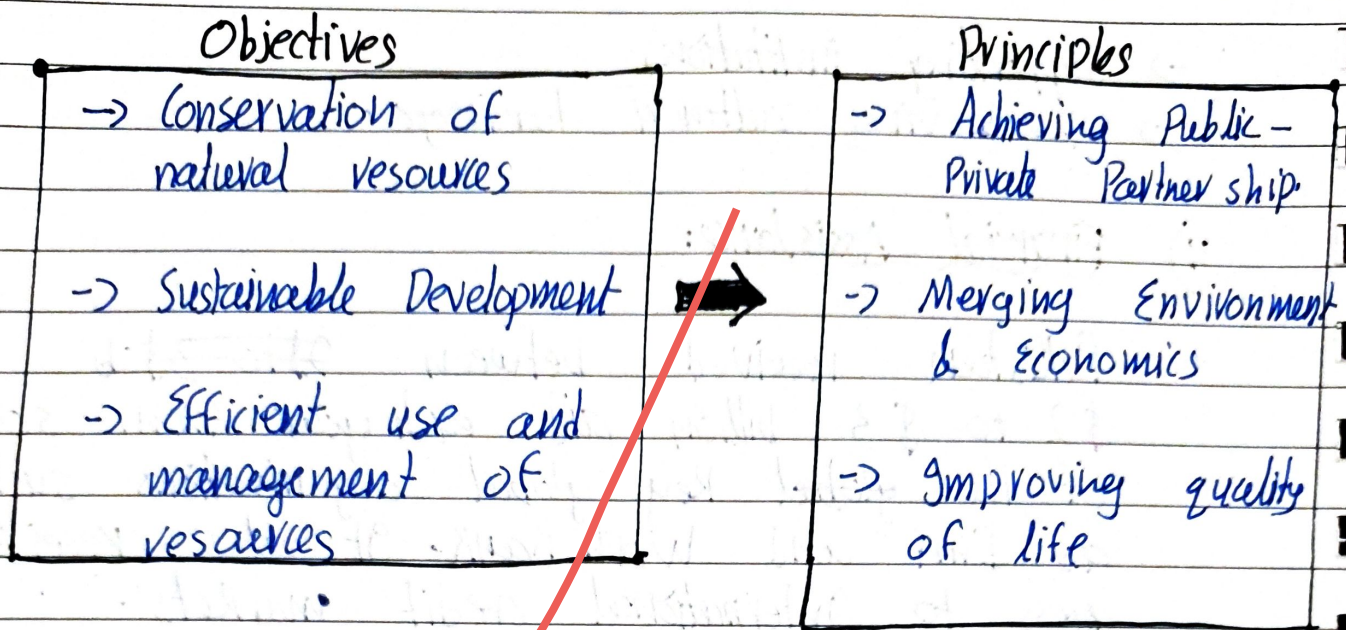 Objectives
-> Conservation of
natural resources
-> Sustainable Development
-> Efficient use and
management of
resources
Principles
-> Achieving Public-
Private Partnership.
-> Merging Environment
& Economics
-> Improving quality
of life